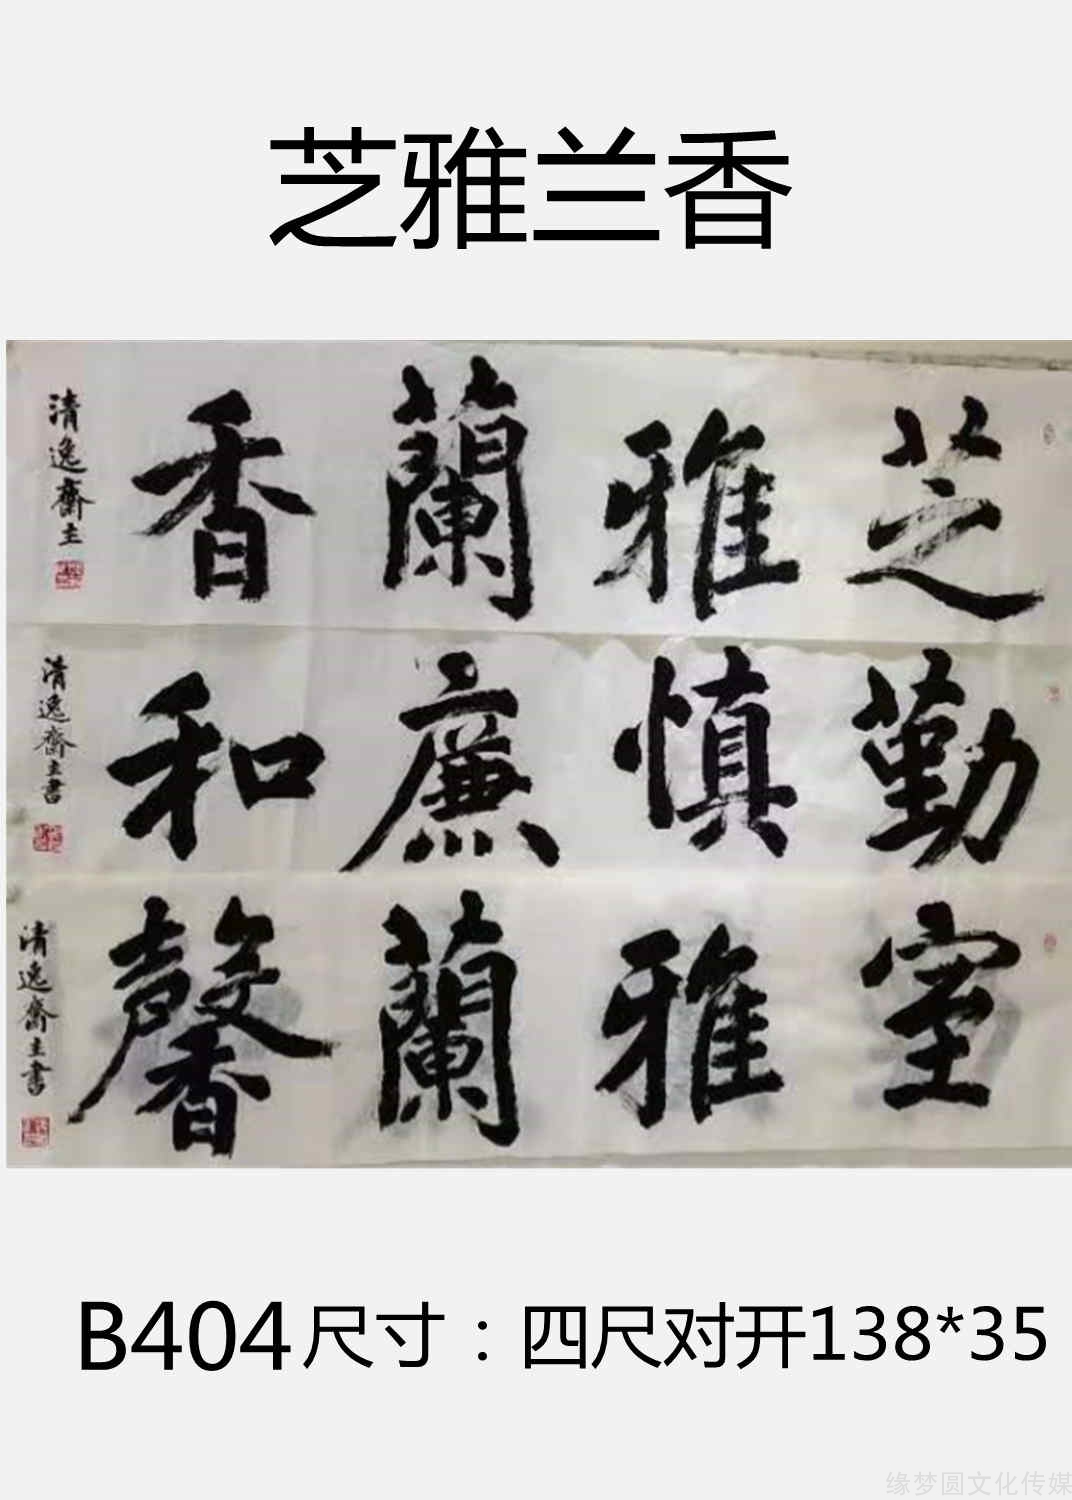 芝雅兰香
芝雅蘭香
清逸齋主
勤慎廉和
清逸齋主書
室雅蘭馨
清逸齋主書
B404尺寸：四尺对开138*35
缘梦圆文化传媒